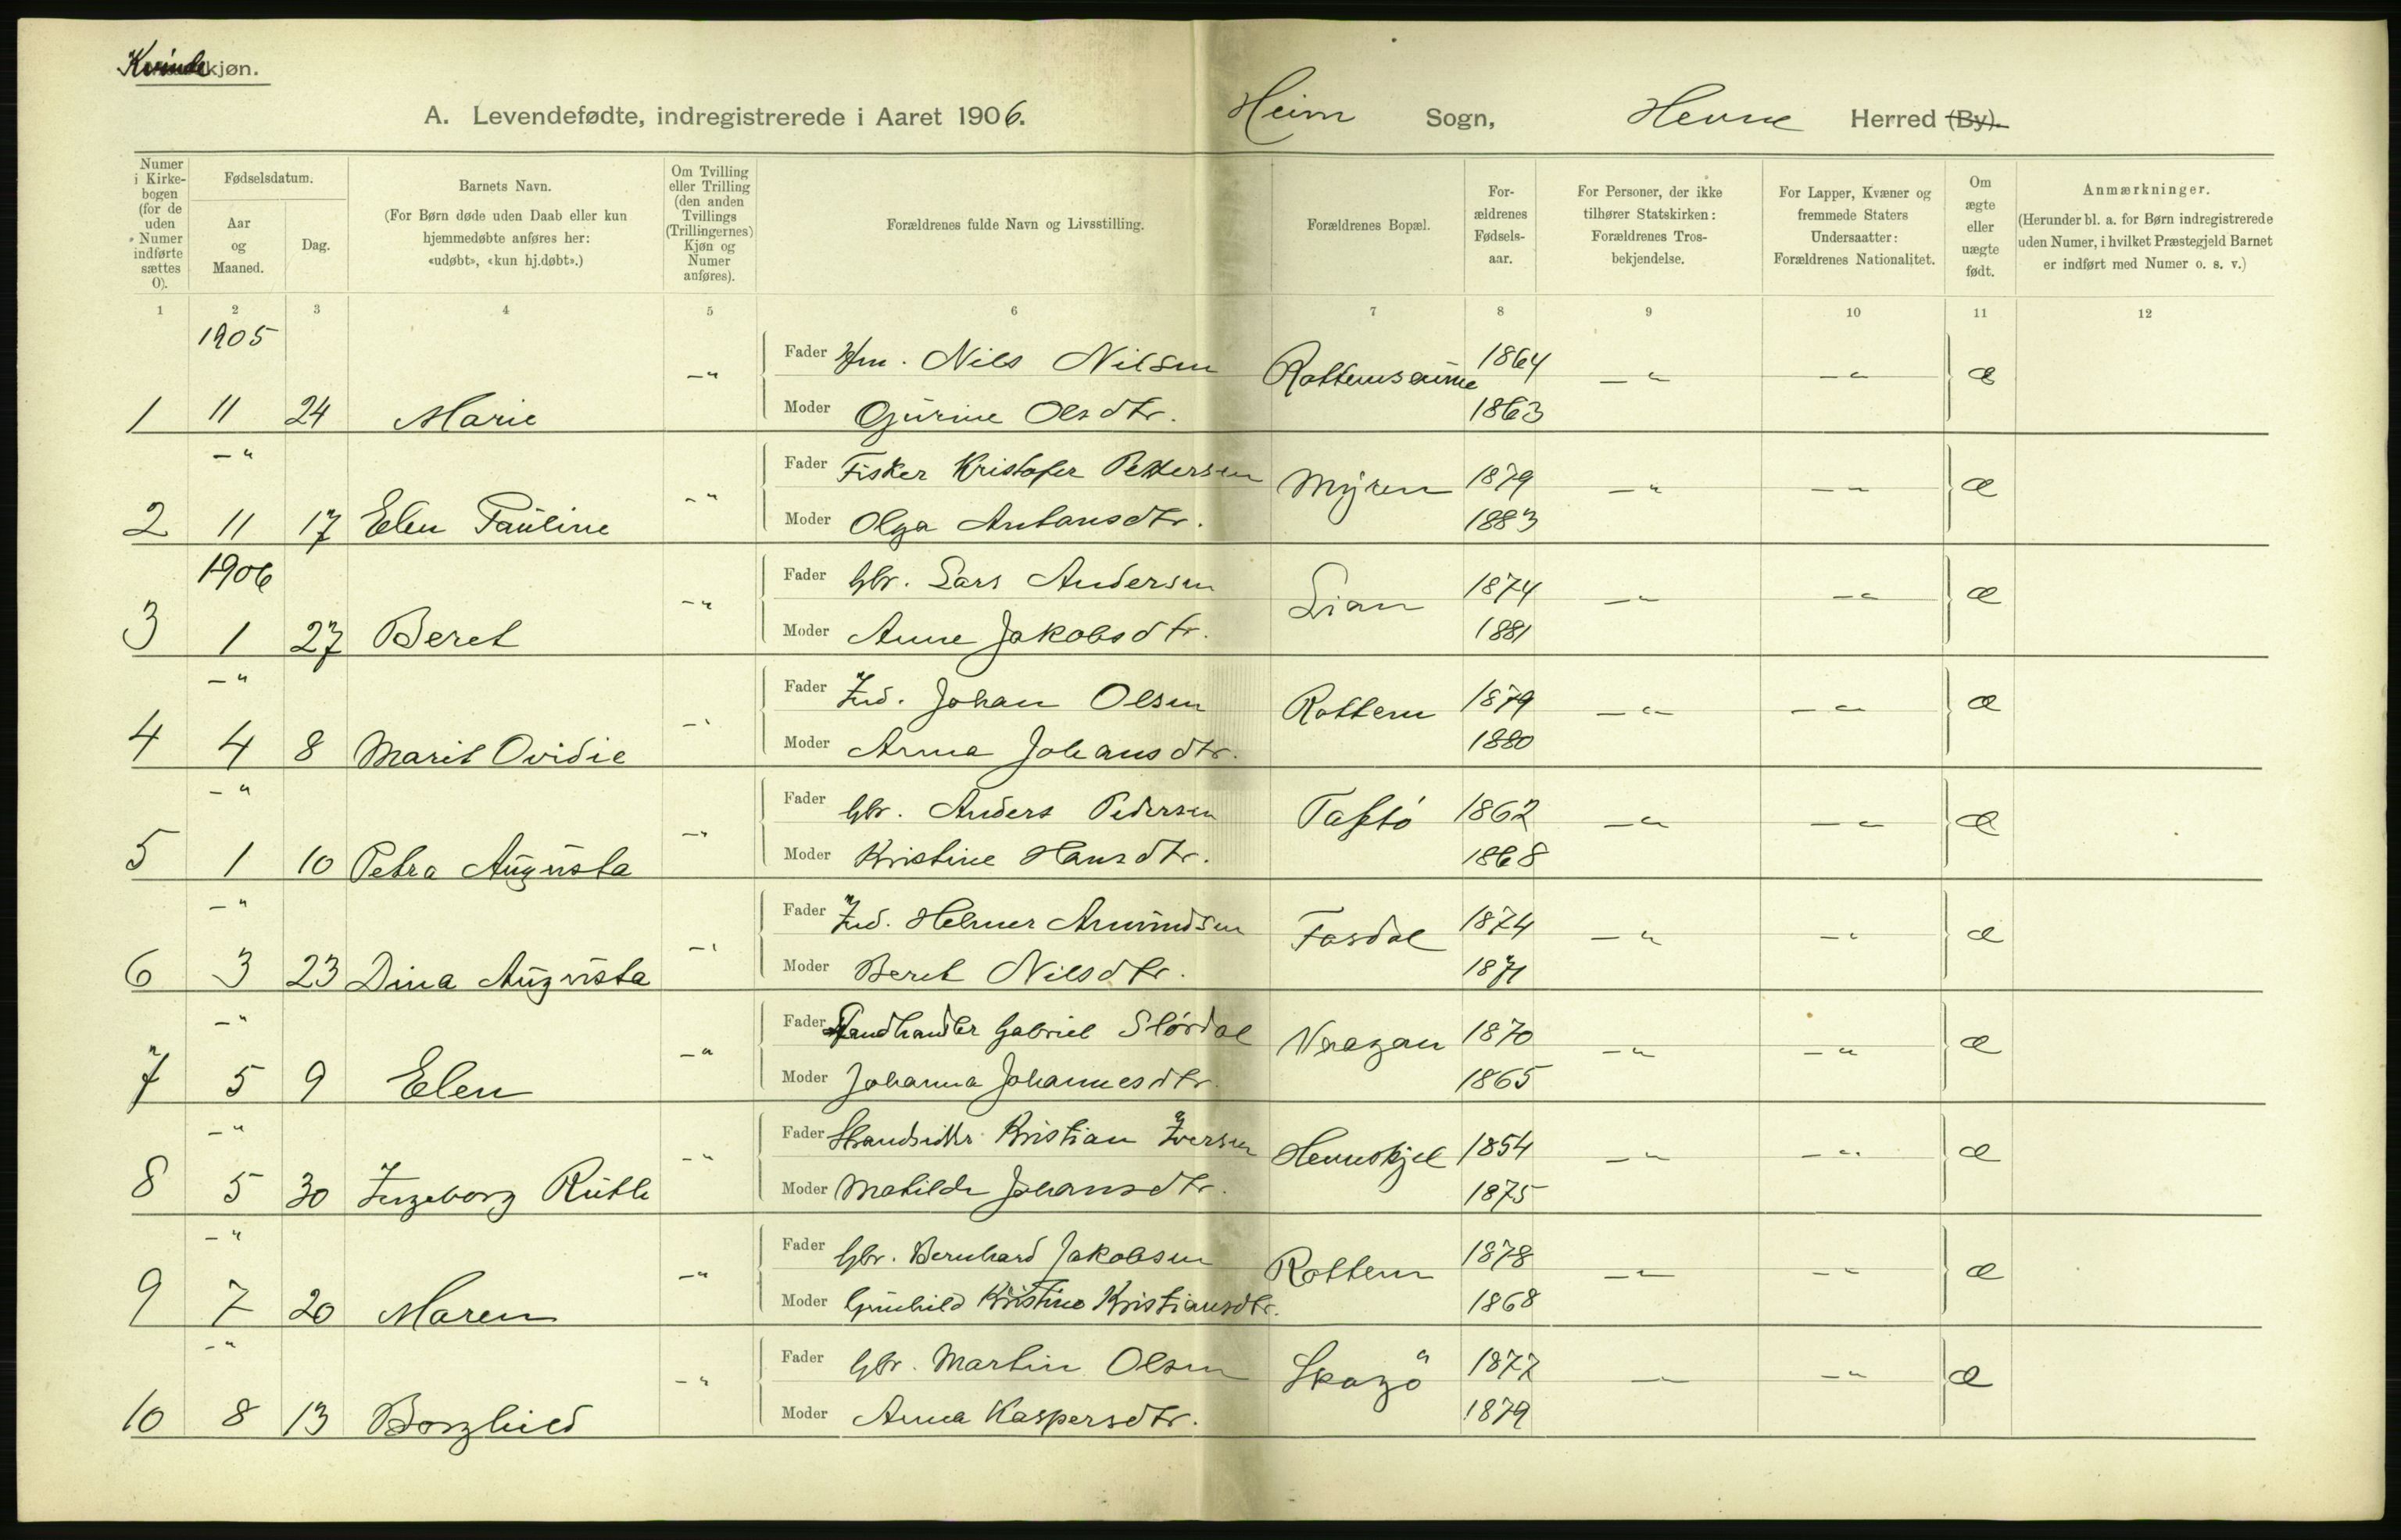 Kvindekjøn.
A. Levendefødte, indregistrerede i Aaret 1906. Heim Sogn, Hevne Herred (By).
Numer i Kirkebogen (for de uden Numer indførte sættes 0).
Fødselsdatum.
Aar og Maaned.
Dag.
Barnets Navn.
(For Børn døde uden Daab eller kun hjemmedøbte anføres her: «udøbt», «kun hj.døbt».)
Om Tvilling eller Trilling (den anden Tvillings (Trillingernes) Kjøn og Numer anføres).
Forældrenes fulde Navn og Livsstilling.
Forældrenes Bopæl.
Forældrenes Fødselsaar.
For Personer, der ikke tilhører Statskirken: Forældrenes Trosbekjendelse.
For Lapper, Kvæner og fremmede Staters Undersaatter: Forældrenes Nationalitet.
Om ægte eller uægte født.
Anmærkninger.
(Herunder bl. a. for Børn indregistrerede uden Numer, i hvilket Præstegjeld Barnet er indført med Numer o. s. v.)
1 2 3 4 5 6 7 8 9 10 11 12
1905
Fader Hm. Nils Nilsen Rottemsaune 1864 -" -" æ
1 11 24 Marie -" Moder Gjurine Olsdtr. 1863
-" Fader Fisker Kristofer Pettersen Myren 1879 -" -" æ
2 11 17 Elen Pauline -" Moder Olga Antonsdtr. 1883
1906 Fader Gbr. Lars Andersen Lian 1874 -" -" æ
3 1 27 Beret -" Moder Anne Jakobsdtr. 1881
-" Fader Ind. Johan Olsen Rottem 1879 -" -" æ
4 4 8 Marit Ovidie -" Moder Anna Johansdtr. 1880
-" Fader Gbr. Anders Pedersen Taftö 1862 -" -" æ
5 1 10 Petra Augusta -" Moder Kristine Hansdtr. 1868
-" Fader Ind. Helmer Amundsen Fosdal 1874 -" -" æ
6 3 23 Dina Augusta -" Moder Beret Nilsdtr. 1871
-" Fader Landhandler Gabriel Stördal 1870 -" -" æ
7 5 9 Elen -" Moder Johanna Johannesdtr. 1865
-" Fader Strandsidder Kristian Iversen Hennskjel 1854 -" -" æ
8 5 30 Ingeborg Ruth -" Moder Matilde Johansdtr. 1875
-" Fader Gbr. Bernhard Jakobsen Rottem 1878 -" -" æ
9 7 20 Maren -" Moder Gunhild Kristine Kristiansdtr. 1868
-" Fader Gbr. Martin Olsen 1877 -" -" æ
10 8 13 Borghild -" Moder Anna Kaspersdtr. 1879